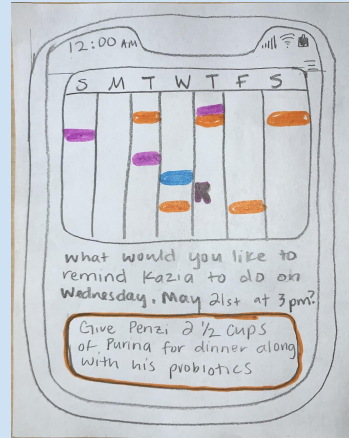 12:00 AM
S M T W T F S
what would you like to
remind Kazia to do on
Wednesday, May 21st at 3pm?
Give Penzi 2 1/2 cups
of Purina for dinner along
with his probiotics